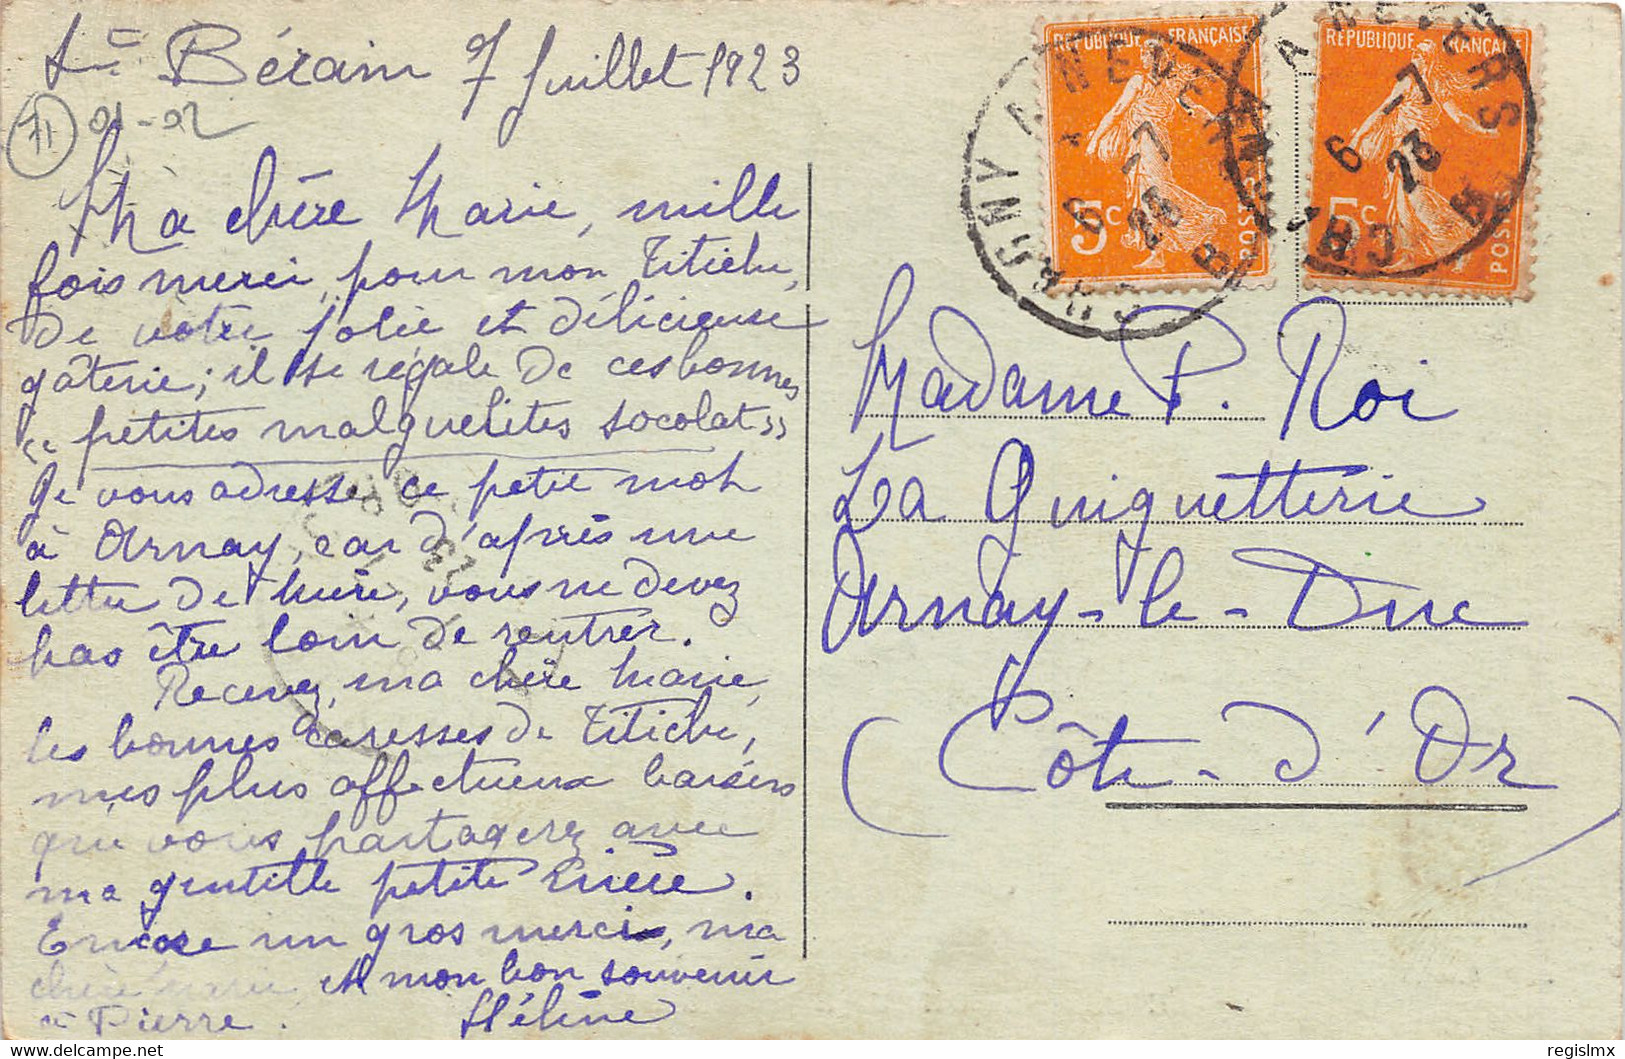 St Bérain 7 Juillet 1923
71 01-02
Ma chère Marie, mille
fois merci, pour mon Titiche,
de votre jolie et délicieuse
gâterie; il se régale de ces bonnes
"petites malquelites socolat"
Je vous adresse ce petit mot
à Arnay, car d'après une
lettre de mère, vous ne devez
pas être loin de rentrer.
Recevez, ma chère Marie,
les bonnes caresses de Titiche,
mes plus affectueux baisers
que vous partagerez avec
ma gentille petite
Encore un gros merci, ma
chère Marie et mon bon souvenir
à Pierre. Hélène
REPUBLIQUE FRANÇAISE
5c
POSTES
REPUBLIQUE FRANÇAISE
5c
POSTES
CHAGNY A NEVERS
6 -7
23
CHAGNY A NEVERS
6 -7
23
Madame P. Roi
La Guiguetterie
Arnay-le-Duc
(Côte-d'Or)
regislmx